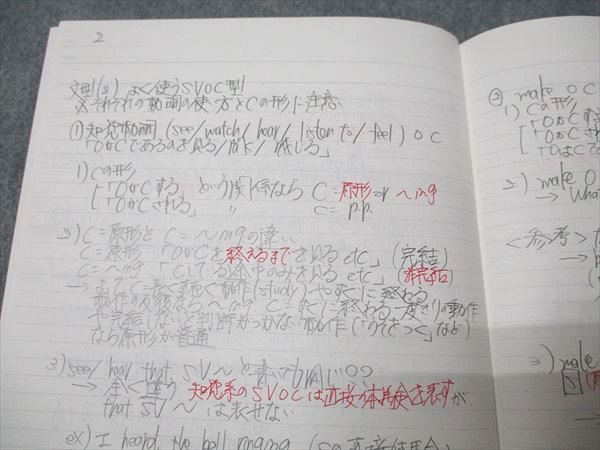 2
文型(2) よく使うSVOC型
※それぞれの動詞の使い方とCの形に注意
① 知覚動詞 (see/watch/hear/listen to/feel) O C
「OがCであるのを見る/聞く/感じる」
1) Cの形
「OがCする」という関係なら C = 原形 or ~ing
「OがCされる」 〃 C = p.p.
2) C = 原形と C = ~ingの違い
C = 原形 「OがCを終えるまでを見る etc」 (完結)
C = ~ing 「Cしている途中のみを見る etc」 (非完結)
→ よって C = 長く続く動作(study)やすぐに終わる
動作の反復なら ~ing C = すぐに終わる一度きりの動作
や完結しないと判断がつかない動作(「うそをつく」など)
なら原形が普通
3) see/hear that SV~ と書いても同じ??
→ 全く違う 知覚系のSVOCは直接の体験を表すが
that SV ~ は表せない
ex) I heard the bell ringing.
② make O C
1) Cの形
「OがCする
「OがCさ
「OはCで
2) make O
→ Wha
<参考>
3) make